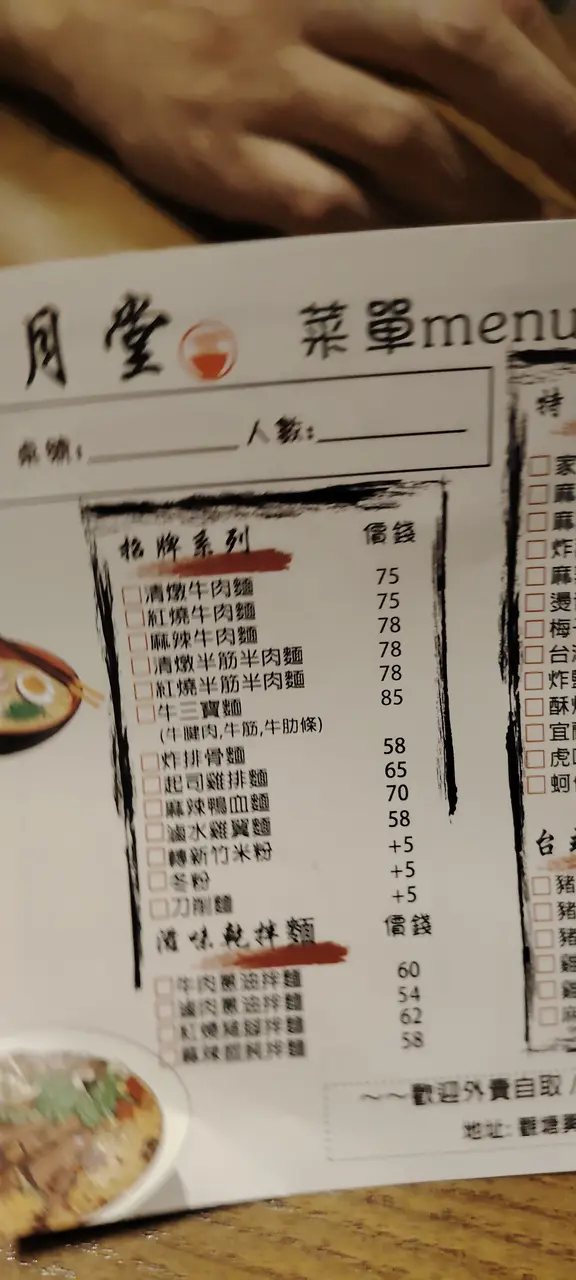 月堂
菜單menu
桌號:
人數:
招牌系列 價錢
清燉牛肉麵 75
紅燒牛肉麵 75
麻辣牛肉麵 78
清燉半筋半肉麵 78
紅燒半筋半肉麵 78
牛三寶麵 85
(牛腱肉,牛筋,牛肋條)
炸排骨麵 58
起司雞排麵 65
麻辣鴨血麵 70
滷水雞翼麵 58
轉新竹米粉 +5
冬粉 +5
刀削麵 +5
滋味乾拌麵 價錢
牛肉蔥油拌麵 60
滷肉蔥油拌麵 54
紅燒豬腳拌麵 62
麻辣 拌麵 58
特
家
麻
麻
炸
麻
燙
梅子
台
炸
酥
宜
虎
蚵
台
豬
豬
豬
雞
雞
麻
~~歡迎外賣自取 /
地址: 觀塘